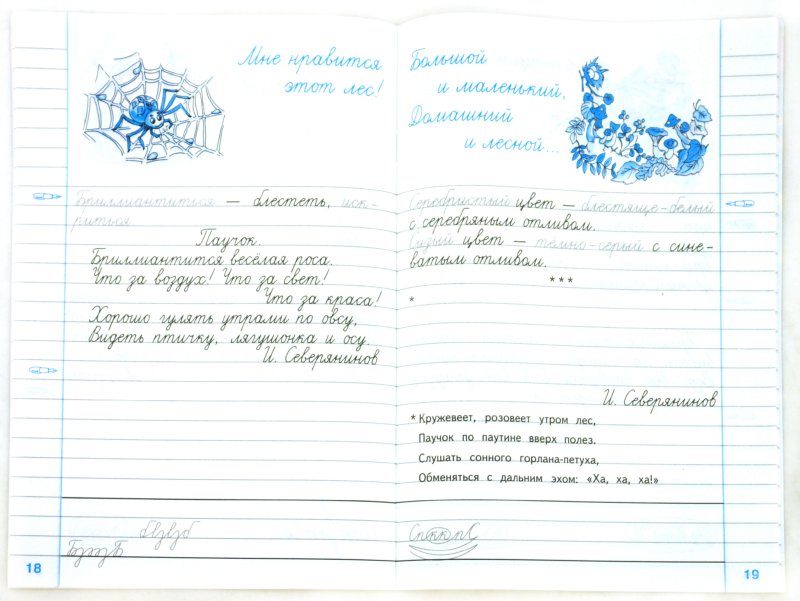 Мне нравится
этот лес!
Бриллиантиться — блестеть, иск-
риться.
Паучок.
Бриллиантится весёлая роса.
Что за воздух! Что за свет!
Что за краса!
Хорошо гулять утрами по овсу,
Видеть птичку, лягушонка и осу.
И. Северянинов
бвзвзб
БззззБ
18
Большой
и маленький,
Домашний
и лесной...
Серебристый цвет — блестяще-белый
с серебряным отливом.
Сизый цвет — темно-серый с сине-
ватым отливом.
***
*
И. Северянинов
* Кружевеет, розовеет утром лес,
Паучок по паутине вверх полез.
Слушать сонного горлана-петуха,
Обменяться с дальним эхом: «Ха, ха, ха!»
19